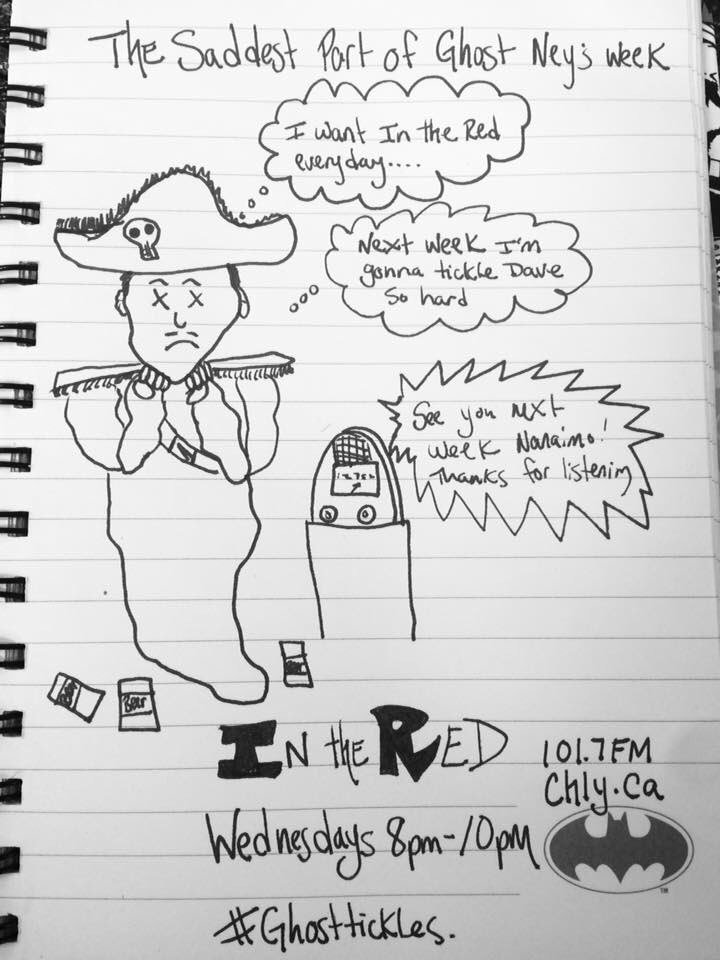 The Saddest Part of Ghost Ney's week
I want In the Red
everyday....
Next week I'm
gonna tickle Dave
So hard
See you nxt
week Nanaimo!
Thanks for listening
Beer
Beer
Beer
In the Red
101.7FM
Chly.ca
Wednesdays 8pm-10pm
TM
#Ghosttickles.